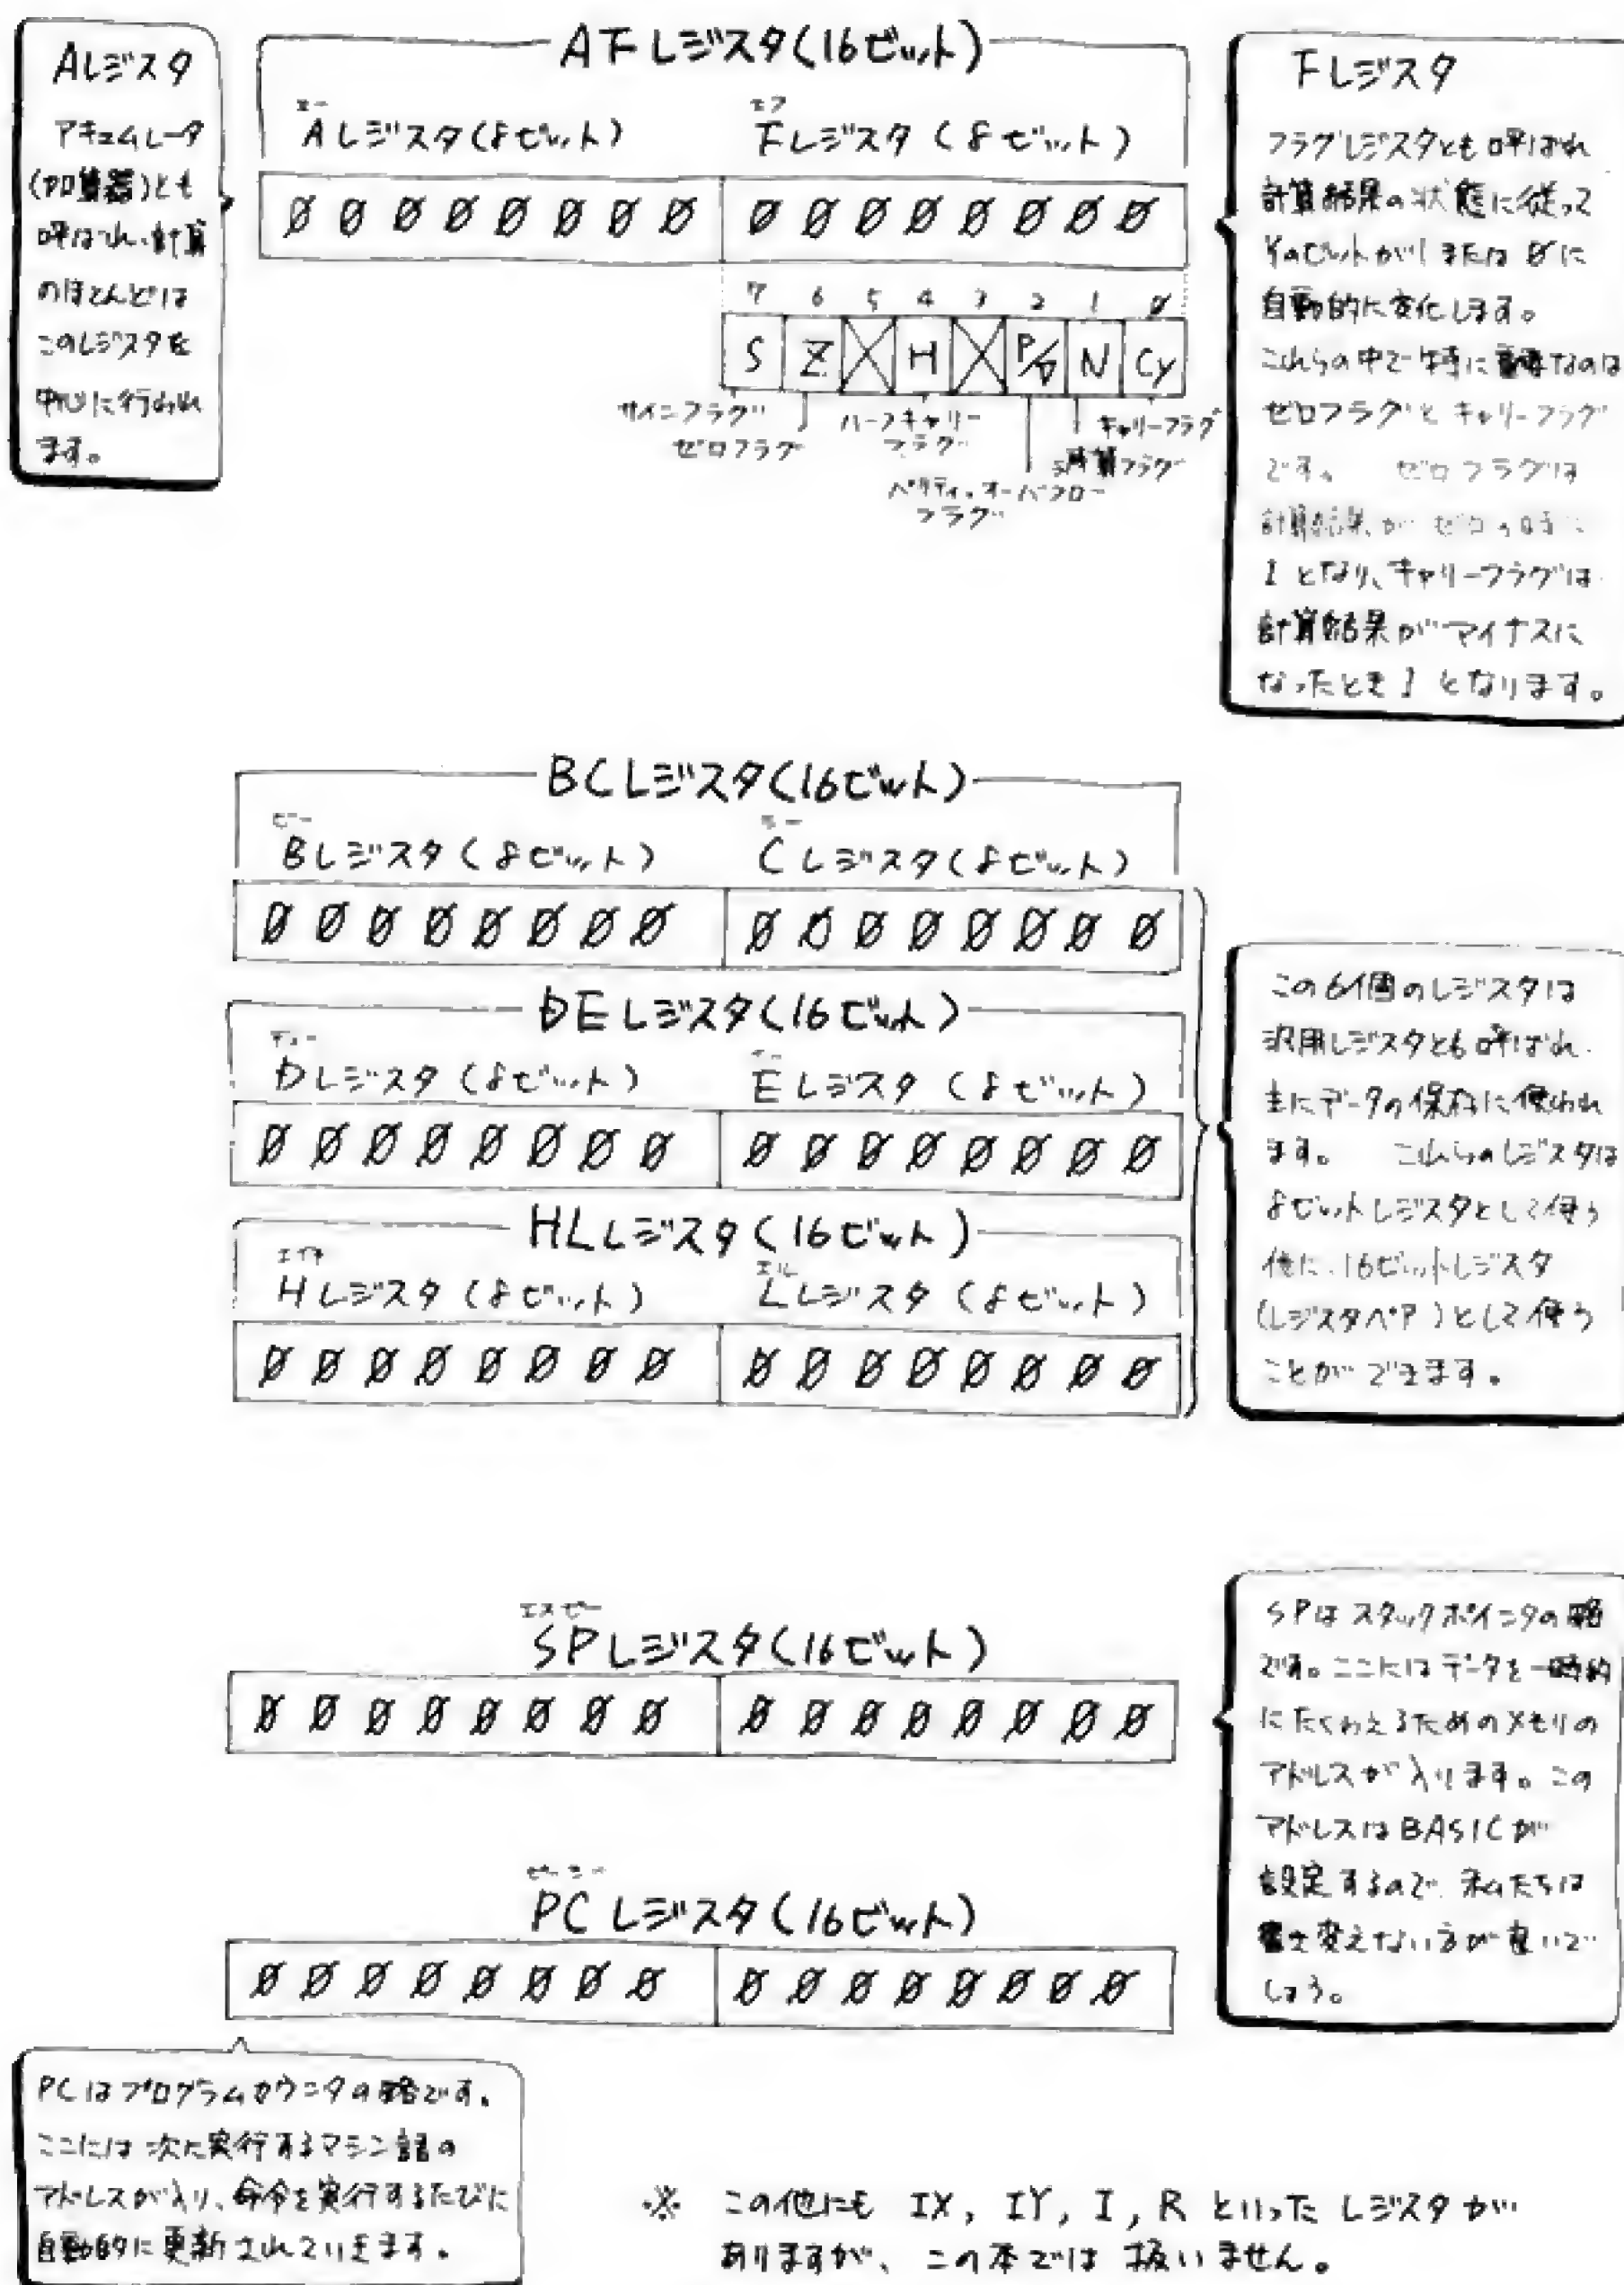 AFレジスタ(16ビット)
Aレジスタ
アキュムレータ
(加算器)とも
呼ばれ、計算
のほとんどは
このレジスタを
中心に行われ
ます。
エー エフ
Aレジスタ(8ビット) Fレジスタ(8ビット)
0 0 0 0 0 0 0 0 0 0 0 0 0 0 0 0
7 6 5 4 3 2 1 0
S Z H P/V N Cy
サインフラグ
ゼロフラグ
ハーフキャリー
フラグ
パリティ・オーバフロー
フラグ
減算フラグ
キャリーフラグ
Fレジスタ
フラグレジスタとも呼ばれ
計算結果の状態に従って
そのビットが1または0に
自動的に変化します。
これらの中で特に重要なのは
ゼロフラグとキャリーフラグ
です。 ゼロフラグは
計算結果がゼロの時に
1となり、キャリーフラグは
計算結果がマイナスに
なったとき1となります。
BCレジスタ(16ビット)
ビー シー
Bレジスタ(8ビット) Cレジスタ(8ビット)
0 0 0 0 0 0 0 0 0 0 0 0 0 0 0 0
DEレジスタ(16ビット)
ディー イー
Dレジスタ(8ビット) Eレジスタ(8ビット)
0 0 0 0 0 0 0 0 0 0 0 0 0 0 0 0
HLレジスタ(16ビット)
エイチ エル
Hレジスタ(8ビット) Lレジスタ(8ビット)
0 0 0 0 0 0 0 0 0 0 0 0 0 0 0 0
この6個のレジスタは
汎用レジスタとも呼ばれ
主にデータの保存に使われ
ます。 これらのレジスタは
8ビットレジスタとして使う
他に、16ビットレジスタ
(レジスタペア)として使う
ことができます。
エスピー
SPレジスタ(16ビット)
0 0 0 0 0 0 0 0 0 0 0 0 0 0 0 0
SPはスタックポインタの略
です。ここにはデータを一時的
にたくわえるためのメモリの
アドレスが入ります。この
アドレスはBASICが
設定するので、私たちは
書き変えない方が良いで
しょう。
ピーシー
PCレジスタ(16ビット)
0 0 0 0 0 0 0 0 0 0 0 0 0 0 0 0
PCはプログラムカウンタの略です。
ここには次に実行するマシン語の
アドレスが入り、命令を実行するたびに
自動的に更新されていきます。
※ この他にも IX, IY, I, R といったレジスタが
ありますが、この本では扱いません。